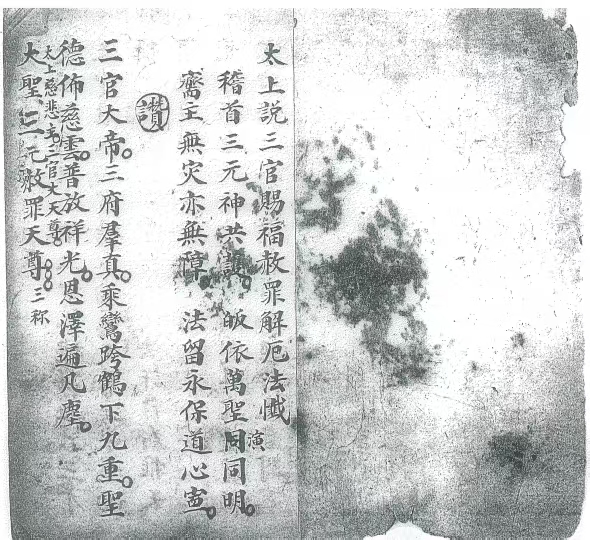 太上説三官賜福赦罪解厄法懺
稽首三元神共護。皈依萬聖同同明。
演
齋主無灾亦無障。法留永保道心寍。
讚
三官大帝。三府羣真。乘鸞跨鶴下九重。聖
德佈慈雲。普放祥光。恩澤遍凡塵。
太上慈悲三官大天尊。
大聖三元赦罪天尊。。。三称